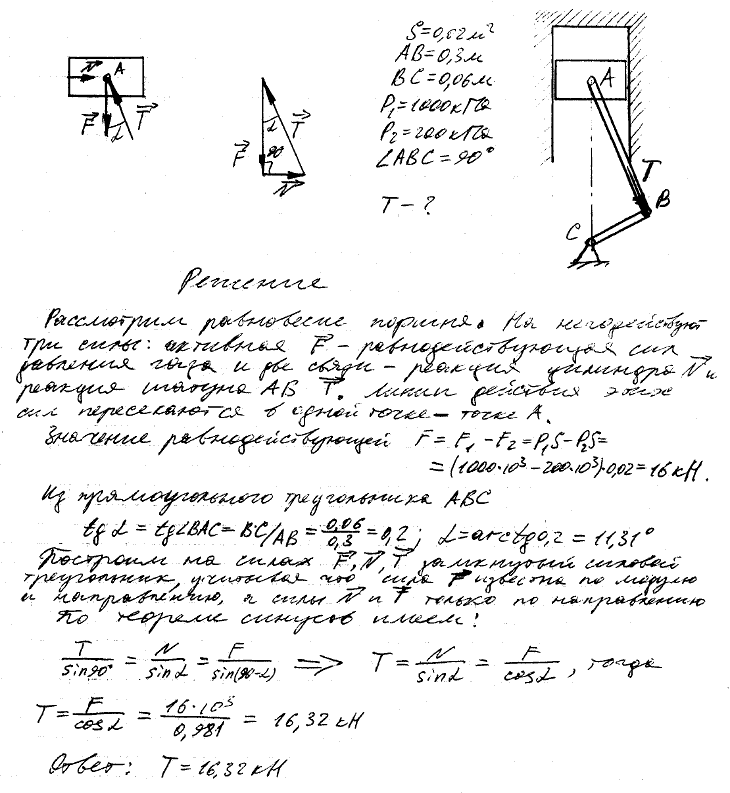 S=0,02м²
AB=0,3м
BC=0,06м
P₁=1000кПа
P₂=200кПа
∠ABC=90°
T – ?
N A
F α T
α T
F 90
N
A
T
B
C
Решение
Рассмотрим равновесие поршня. На него действуют
три силы: активная F – равнодействующая сил
давления газа и две связи – реакция цилиндра N и
реакция шатуна AB T. Линии действия этих
сил пересекаются в одной точке – точке A.
Значение равнодействующей F = F₁ – F₂ = P₁S – P₂S =
= (1000·10³ – 200·10³)·0,02 = 16 кН.
Из прямоугольного треугольника ABC
tg α = tg∠BAC = BC/AB = 0,06/0,3 = 0,2; α = arctg 0,2 = 11,31°
Построим на силах F, N, T замкнутый силовой
треугольник, учитывая что сила F известна по модулю
и направлению, а силы N и T только по направлению
По теореме синусов имеем:
T/sin90° = N/sin α = F/sin(90-α) ⟹ T = N/sin α = F/cos α, тогда
T = F/cos α = 16·10³/0,981 = 16,32 кН
Ответ: T = 16,32 кН